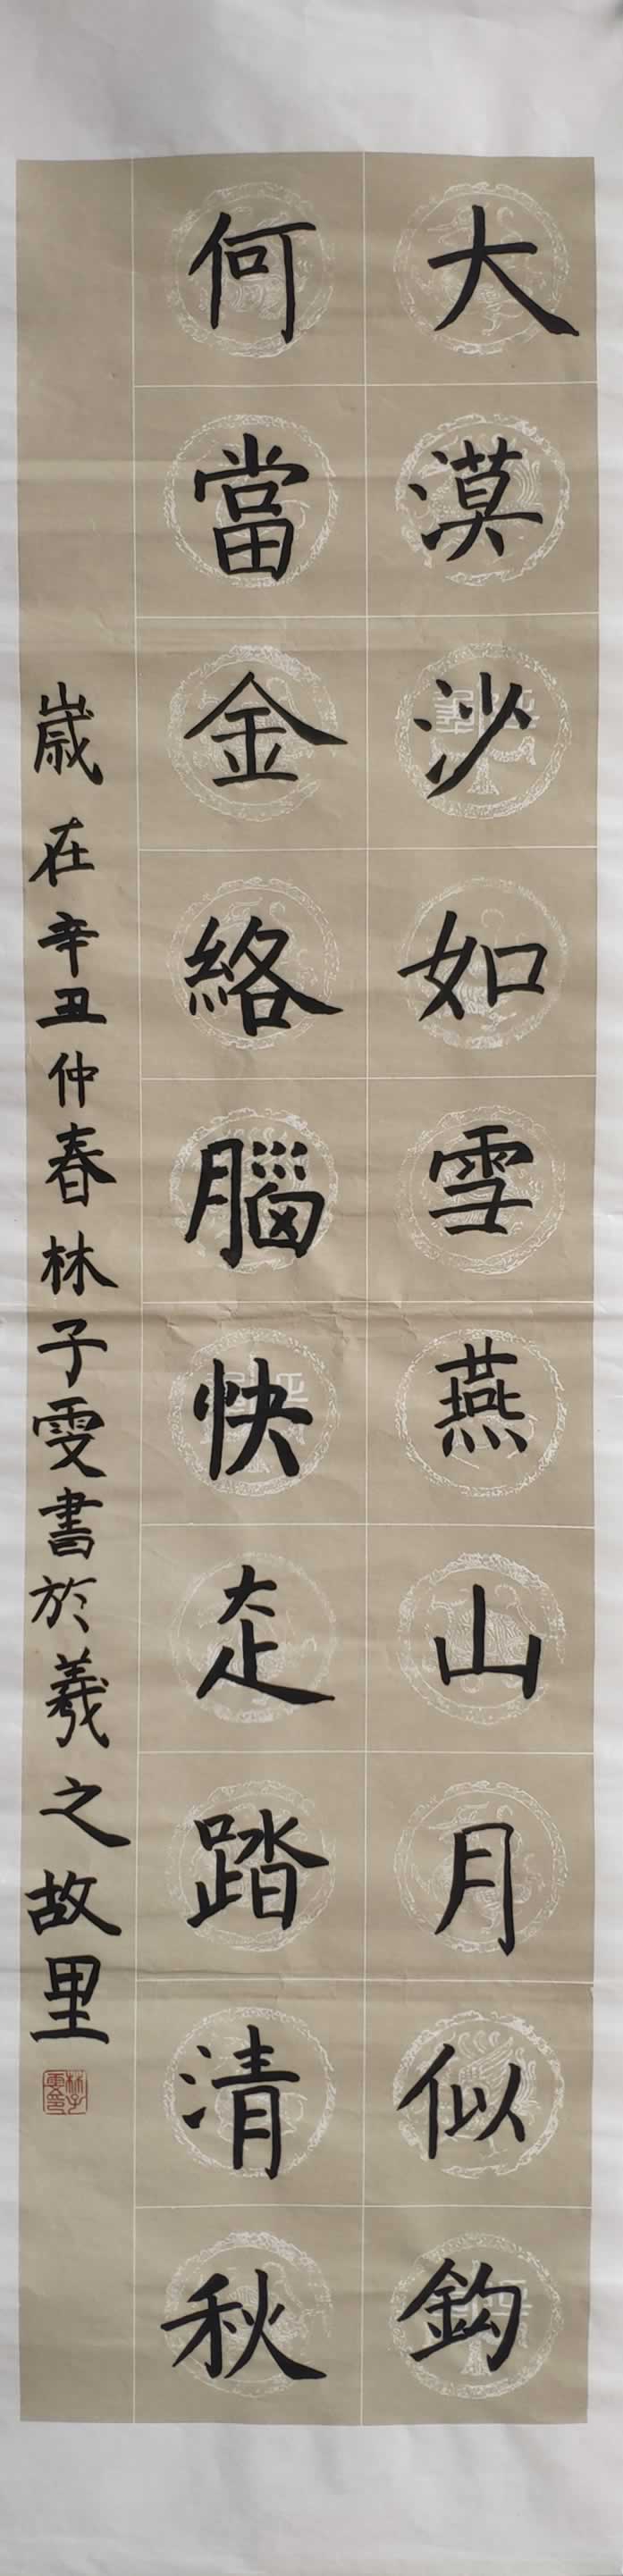 大漠沙如雪燕山月似鈎
何當金絡腦快走踏清秋
歲在辛丑仲春林子雯書於羲之故里